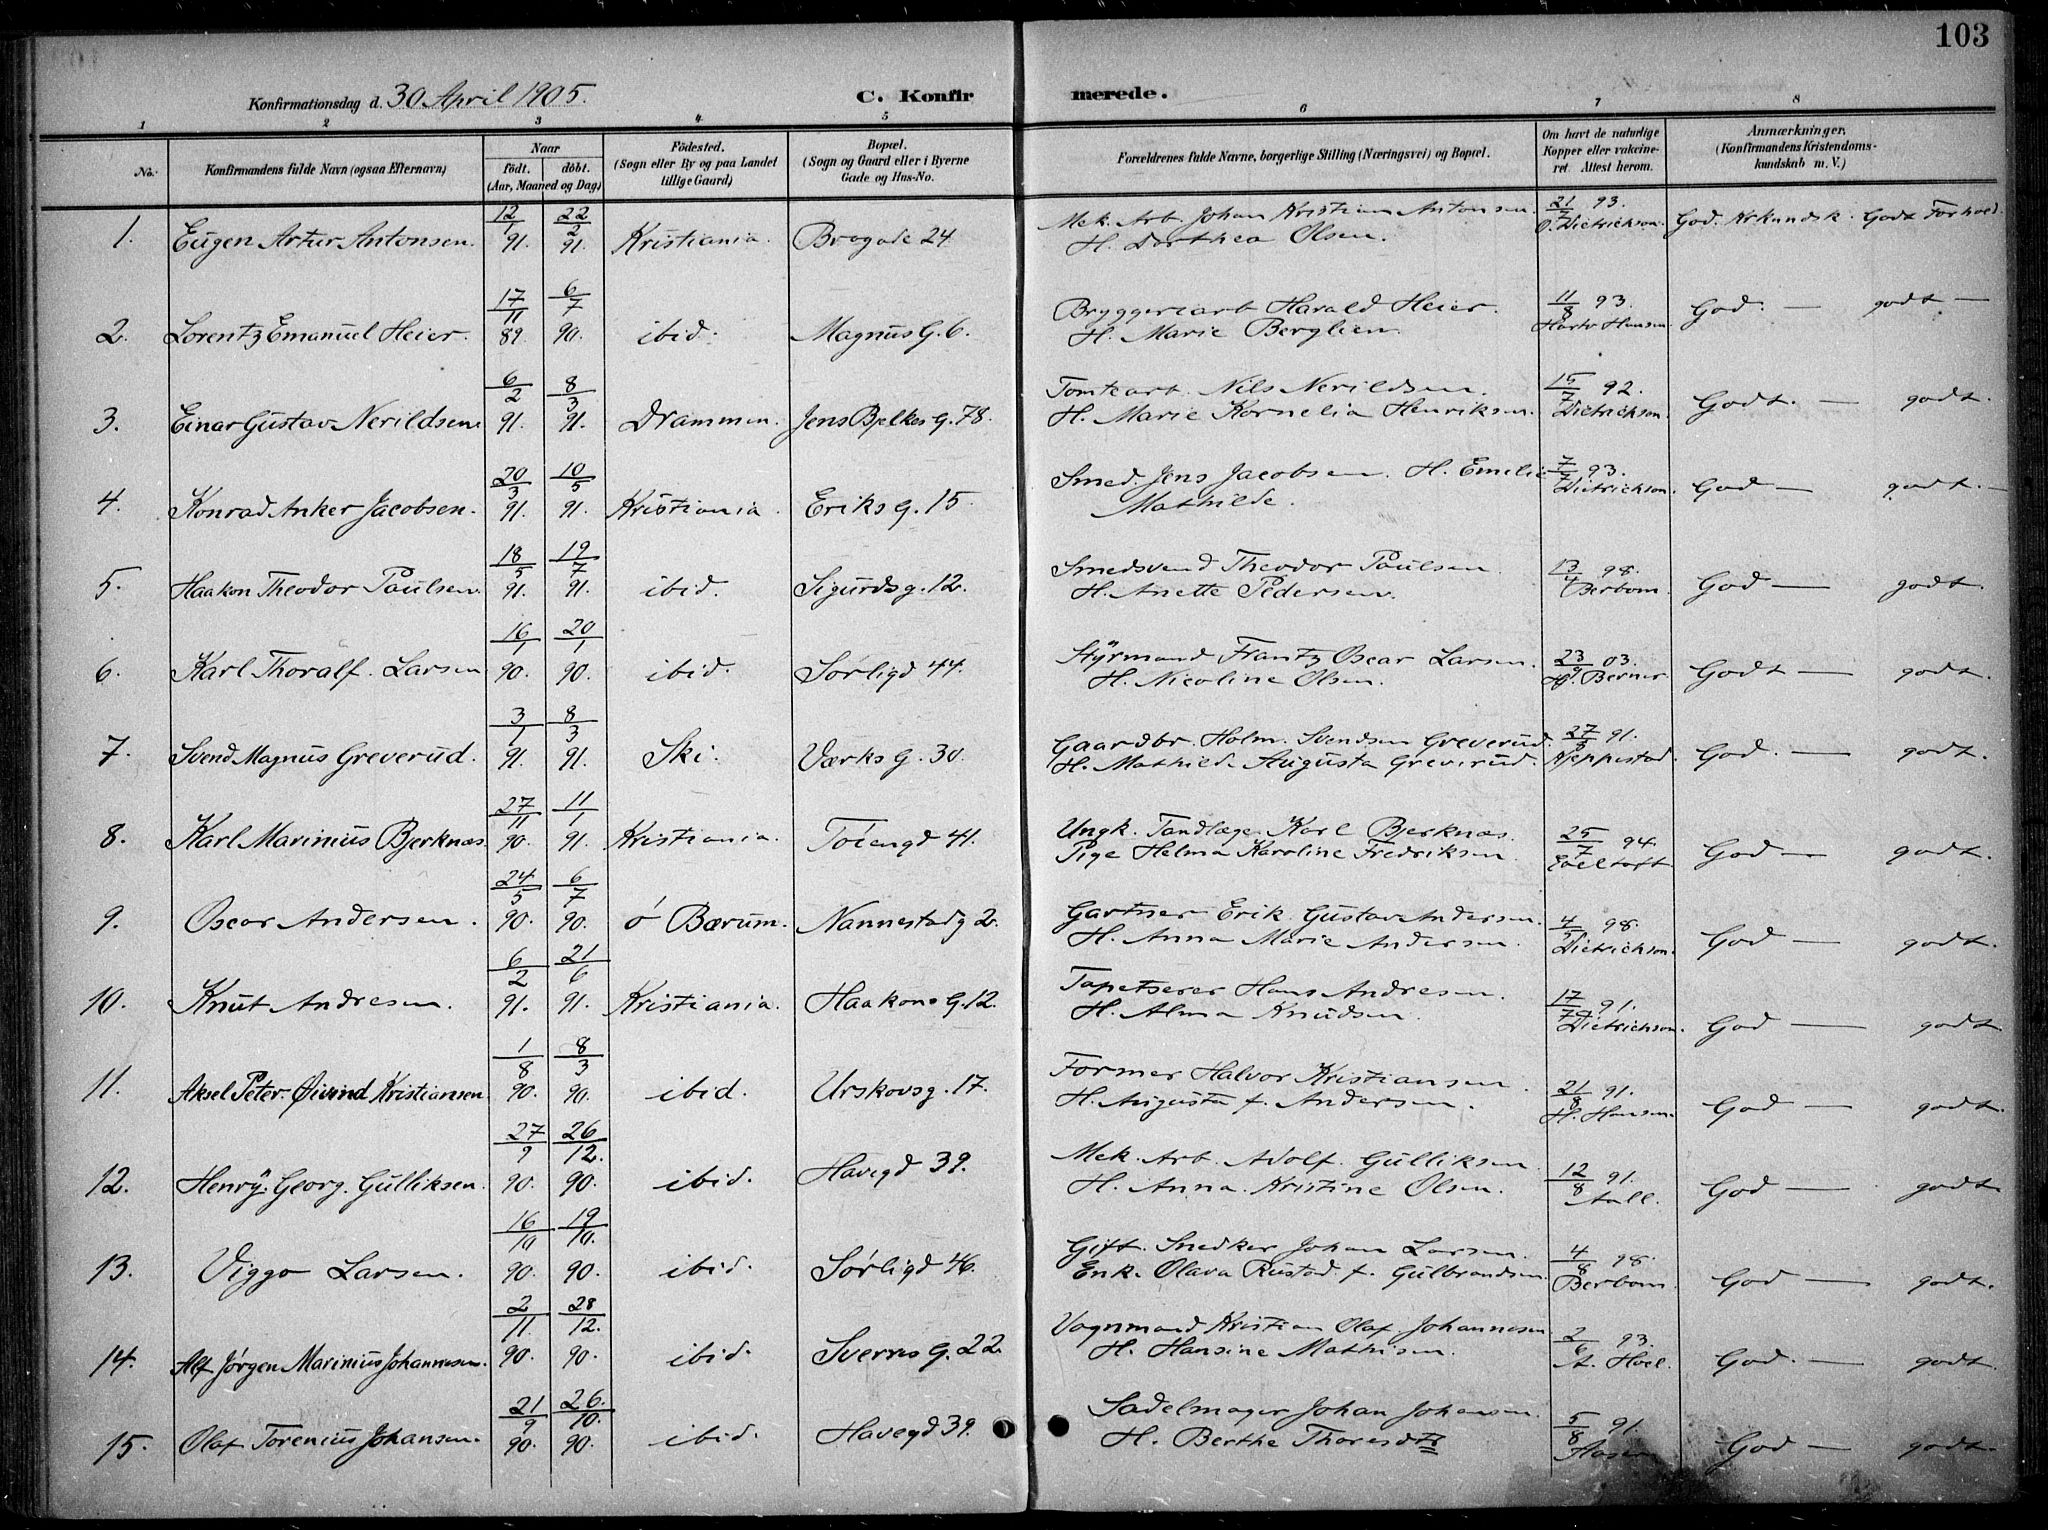 103
Konfirmationsdag d. 30 April 1905.
C. Konfirmerede.
1 2 3 4 5 6 7 8
No. Konfirmandens fulde Navn (ogsaa Efternavn) Naar født. døbt. (Aar, Maaned og Dag) Fødested. (Sogn eller By og paa Landet tillige Gaard) Bopæl. (Sogn og Gaard eller i Byerne Gade og Hus-No. Forældrenes fulde Navne, borgerlige Stilling (Næringsvei) og Bopæl. Om havt de naturlige Kopper eller vakcineret. Attest herom. Anmærkninger. (Konfirmandens Kristendomskundskab m. V.)
1. Eugen Artur Antonsen. 12/1 91. 22/2 91. Kristiania. Brogade 24. Mek. Arb. Johan Kristian Antonsen. H. Dorthea Olsen. 21/7 93. O. Dietrichson. God. Krkundsk. Godt Forhold
2. Lorentz Emanuel Heier. 17/11 89. 6/7 90. ibid. Magnus G. 6. Bryggeriarb Harald Heier. H. Marie Berglien. 11/8 93. Hartv Hansen God. — godt —
3. Einar Gustav Nerildsen. 6/2 91. 8/3 91. Drammen. Jens Bjelkes G. 78. Tomtearb. Nils Nerildsen. H. Marie Kornelia Henriksen. 15/7 92. Dietrichson. Godt. — godt.
4. Konrad Anker Jacobsen. 20/3 91. 10/5 91. Kristiania. Eriks G. 15. Smed. Jens Jacobsen. H. Emelie Mathilde. 7/7 93. Dietrichson. God — godt. —
5. Haakon Theodor Paulsen. 18/5 91. 19/7 91. ibid. Sigurds g. 12. Smedsvend Theodor Paulsen. H. Anette Pedersen. 13/4 98. Berbom. God — godt.
6. Karl Thoralf. Larsen 16/1 90. 20/1 90. ibid. Sørligd 44. Styrmand Frantz Oscar Larsen. H. Nicoline Olsen. 23/9 03. Berner. Godt — godt.
7. Svend Magnus Greverud. 3/1 91. 8/3 91. Ski. Værks G. 30. Gaardbr. Holm. Svendsen Greverud. H. Mathilde Augusta Greverud. 27/3 91. Kjeppestad. God. — godt.
8. Karl Marinius Bjerknæs. 27/11 90. 11/1 91. Kristiania. Tøiengd 41. Ungk. Tandlæge Karl Bjerknæs. Pige Helma Karoline Fredriksen. 25/7 94. God — godt.
9. Oscar Andersen. 24/5 90. 6/7 90. ó Bærum. Nannestadg 2. Gartner Erik Gustav Andersen. H. Anna Marie Andersen. 4/5 98. Dietrichson. God — godt.
10. Knut Andresen. 6/2 91. 21/6 91. Kristiania. Haakons G. 12. Tapetserer Hans Andresen. H. Alma Knudsen. 17/7 91. Dietrichson. God — godt.
11. Aksel Peter Øivind Kristiansen 1/8 90. 8/3 90. ibid. Urskovsg. 17. Former Halvor Kristiansen. H. Augusta f. Andersen. 21/8 91. H. Hansen. God — godt.
12. Henry Georg. Gulliksen. 27/9 90. 26/12. 90. ibid. Havegd 39. Mek. Arb. Adolf. Gulliksen. H. Anna Kristine Olsen. 12/8 91. Aall. God — godt.
13. Viggo Larsen. 16/10 90. 19/10. 90. ibid. Sørligd 46. Gift. Snedker Johan Larsen. Enk. Olava Rustad f. Gulbrandsen. 4/8 98. Berbom. God — godt.
14. Alf Jørgen Marinius Johannesen. 2/11. 90. 28/12. 90. ibid. Sverres G. 22. Vognmand Kristian Olaf Johannesen. H. Hansine Mathisen. 2/6 93. A. Hoel. God. — godt.
15. Olaf Torenius Johansen. 21/9 90. 26/10. 90. ibid. Havegd 39. Sadelmager Johan Johansen. H. Berthe Thoresdtr 5/8 91. God — godt.